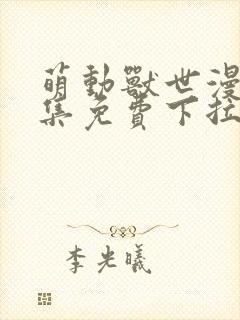 萌動獸世漫
集免費下拉
李光曦